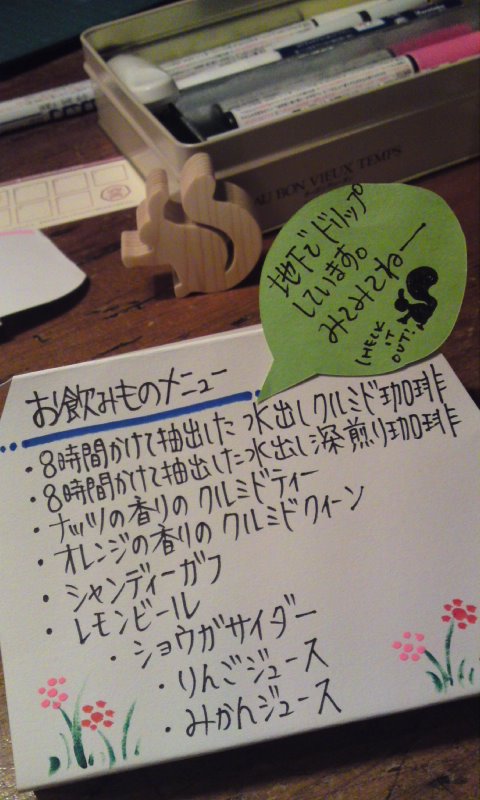 AU BON VIEUX TEMPS
地下でドリップ
しています。
みてみてねー
CHECK
IT
OUT!
お飲みものメニュー
・8時間かけて抽出した水出しクルミド珈琲
・8時間かけて抽出した水出し深煎り珈琲
・ナッツの香りのクルミドティー
・オレンジの香りのクルミドクイーン
・シャンディーガフ
・レモンビール
・ショウガサイダー
・りんごジュース
・みかんジュース